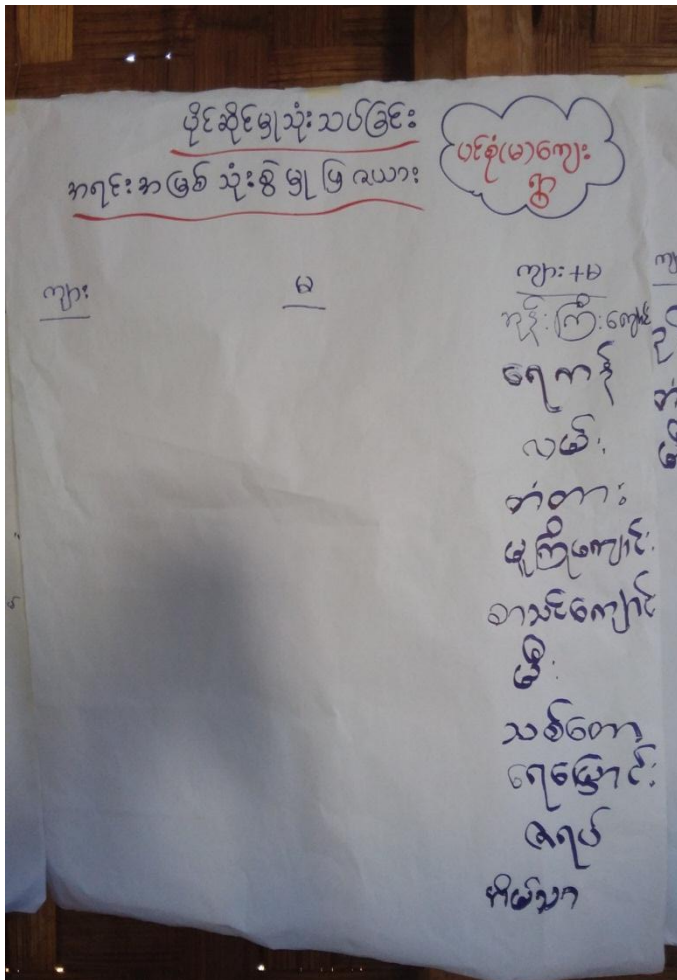 ပိုင်ဆိုင်မှုသုံးသပ်ခြင်း
အရင်းအမြစ် သုံးစွဲ မှု ပြ ဇယား
ပင်စုံ(မ)ကျေး
ရွာ
ကျား
မ
ကျား+မ
ဘုန်းကြီးကျောင်း
ရေကန်
လမ်း
တံတား
မူကြိုကျောင်း
စာသင်ကျောင်း
မြို့
သစ်တော
ရေမြောင်း
ဇရပ်
အိမ်သာ